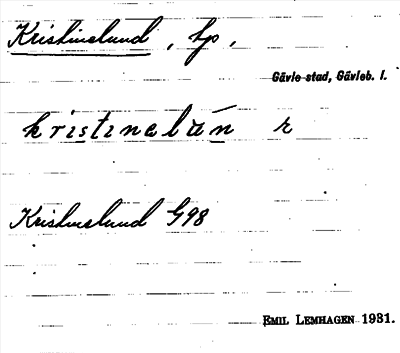 Kristinelund, hp,
Gävle stad, Gävleb. l.
kristinelún r
Kristinelund G98
EMIL LEMHAGEN 1931.